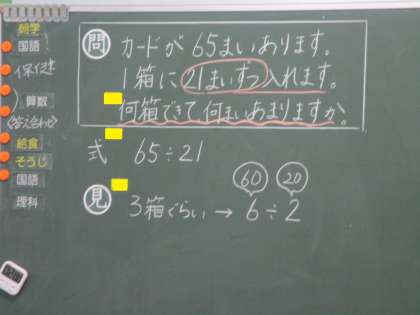 朝学
国語
保健
算数
(答え合わせ)
給食
そうじ
国語
理科
問 カードが65まいあります。
1箱に21まいずつ入れます。
何箱できて何まいあまりますか。
式 65÷21
60 20
見 3箱ぐらい→6÷2